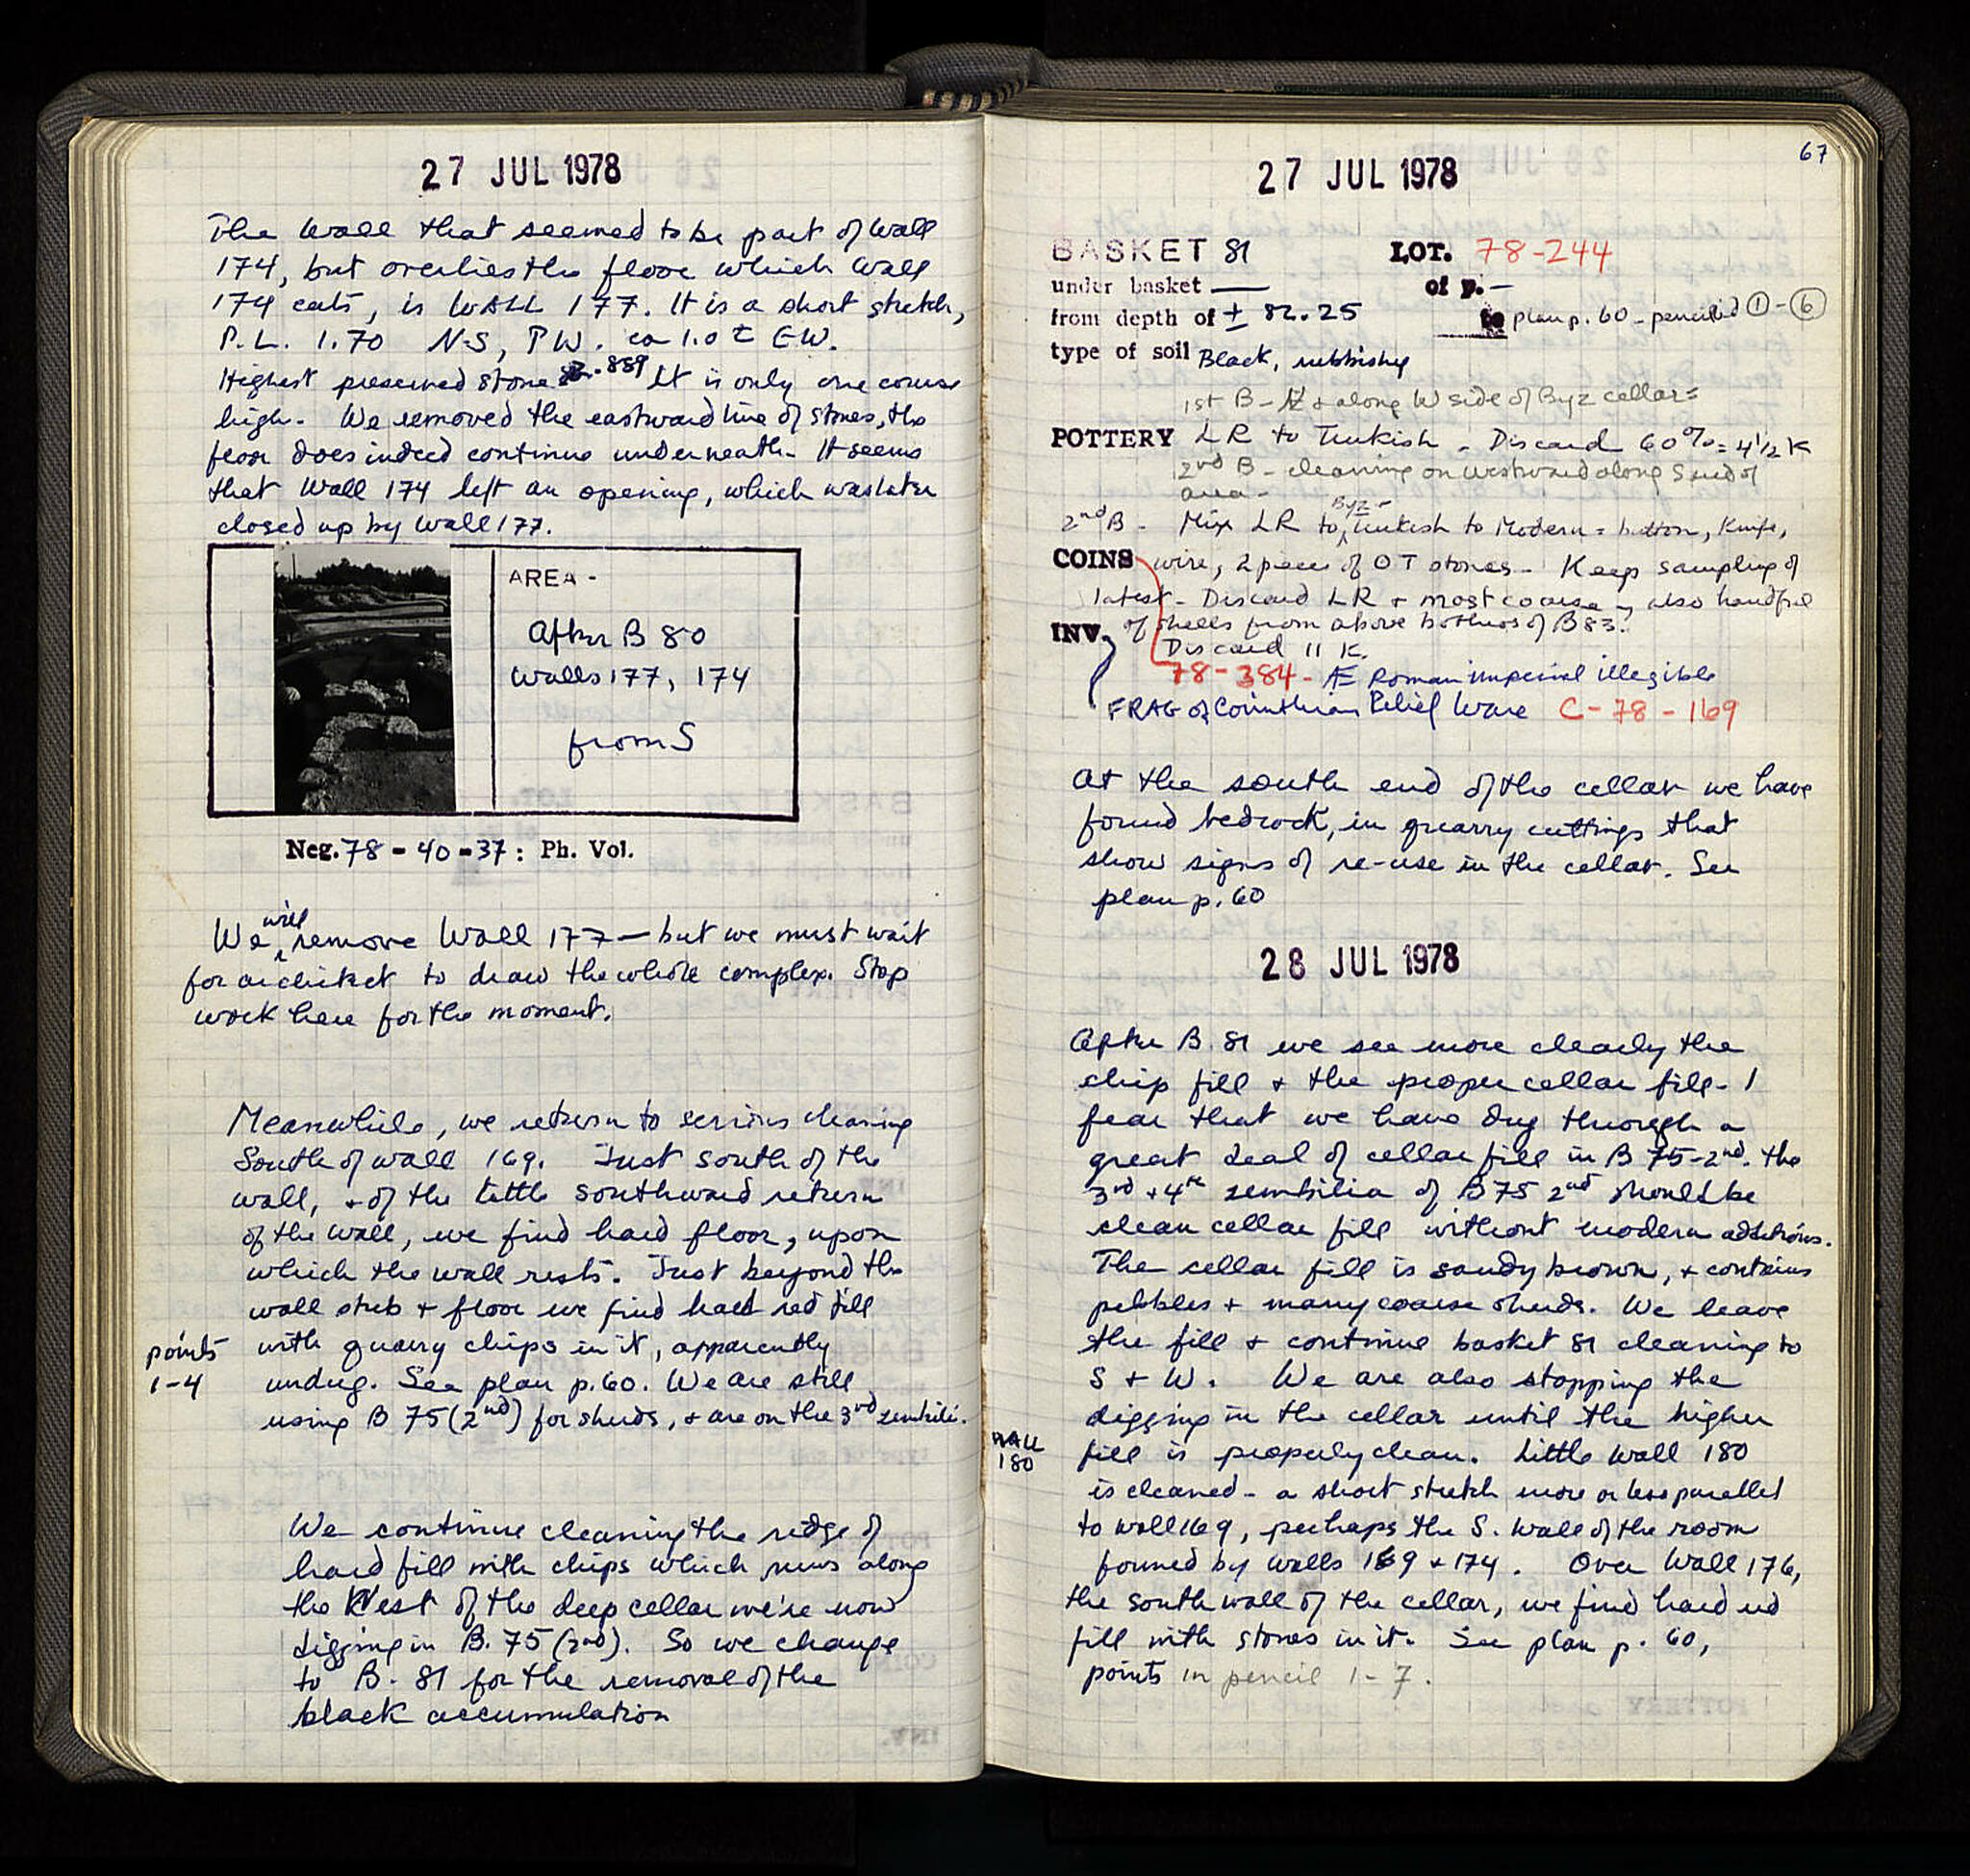 27 JUL 1978
The wall that seemed to be part of Wall
174, but overlies the floor which Wall
174 cuts, is WALL 177. It is a short stretch,
P.L. 1.70 N-S, P.W. ca 1.0 ± EW.
Highest preserved stone .889 It is only one course
high. We removed the eastward line of stones, the
floor does indeed continue underneath. It seems
that Wall 174 left an opening, which was later
closed up by Wall 177.
AREA -
After B 80
Walls 177, 174
from S
Neg. 78 - 40 - 37 : Ph. Vol.
We will remove Wall 177 — but we must wait
for architect to draw the whole complex. Stop
work here for the moment.
Meanwhile, we return to serious cleaning
South of wall 169. Just south of the
wall, + of the little southward return
of the wall, we find hard floor, upon
which the wall rests. Just beyond the
wall stub + floor we find hard red fill
points with quarry chips in it, apparently
1-4 undug. See plan p. 60. We are still
using B 75 (2nd) for sherds, + are on the 3rd zembili.
We continue cleaning the ridge of
hard fill with chips which runs along
the West of the deep cellar we're now
digging in B. 75 (2nd). So we change
to B. 81 for the removal of the
black accumulation
67
27 JUL 1978
BASKET 81 LOT. 78-244
under basket — of p. —
from depth of ± 82.25 to plan p. 60 - pencilled ① - ⑥
type of soil Black, rubbishy
1st B - + along W side of Byz cellar =
POTTERY LR to Turkish - Discard 60% = 4 1/2 K
2nd B - cleaning on westward along S end of
area -
2nd B - Mix LR to Byz - Turkish to Modern = button, knife,
COINS wire, 2 pieces of OT stones - Keep sampling of
latest - Discard LR + most coarse - also handful
INV. of shells from above bothros of B 83.
Discard 11 K.
78-384 - Æ Roman imperial illegible
FRAG of Corinthian Relief Ware C-78-169
At the south end of the cellar we have
found bedrock, in quarry cuttings that
show signs of re-use in the cellar. See
plan p. 60
28 JUL 1978
After B. 81 we see more clearly the
chip fill + the proper cellar fill - I
fear that we have dug through a
great deal of cellar fill in B 75-2nd. The
3rd + 4th zembilia of B 75 2nd should be
clean cellar fill without modern additions.
The cellar fill is sandy brown, + contains
pebbles + many coarse sherds. We leave
the fill + continue basket 81 cleaning to
S + W. We are also stopping the
digging in the cellar until the higher
WALL 180 fill is properly clean. Little Wall 180
is cleaned - a short stretch more or less parallel
to Wall 169, perhaps the S. wall of the room
formed by walls 169 + 174. Over Wall 176,
the south wall of the cellar, we find hard red
fill with stones in it. See plan p. 60,
points in pencil 1-7.